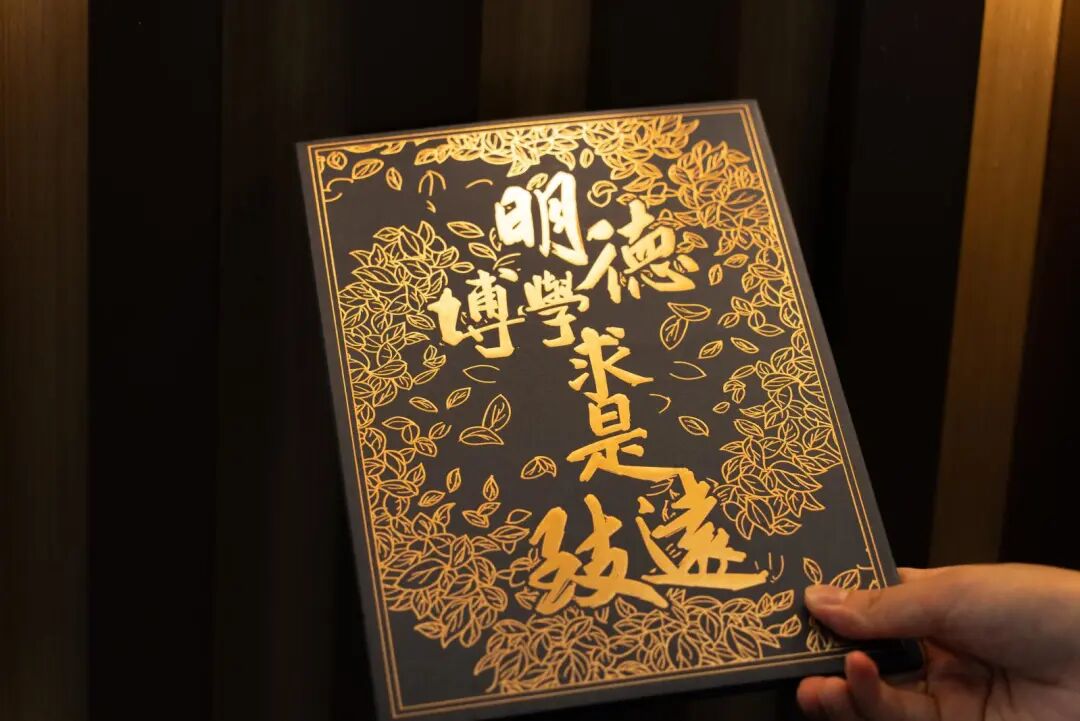 明德
博學
求是
致遠